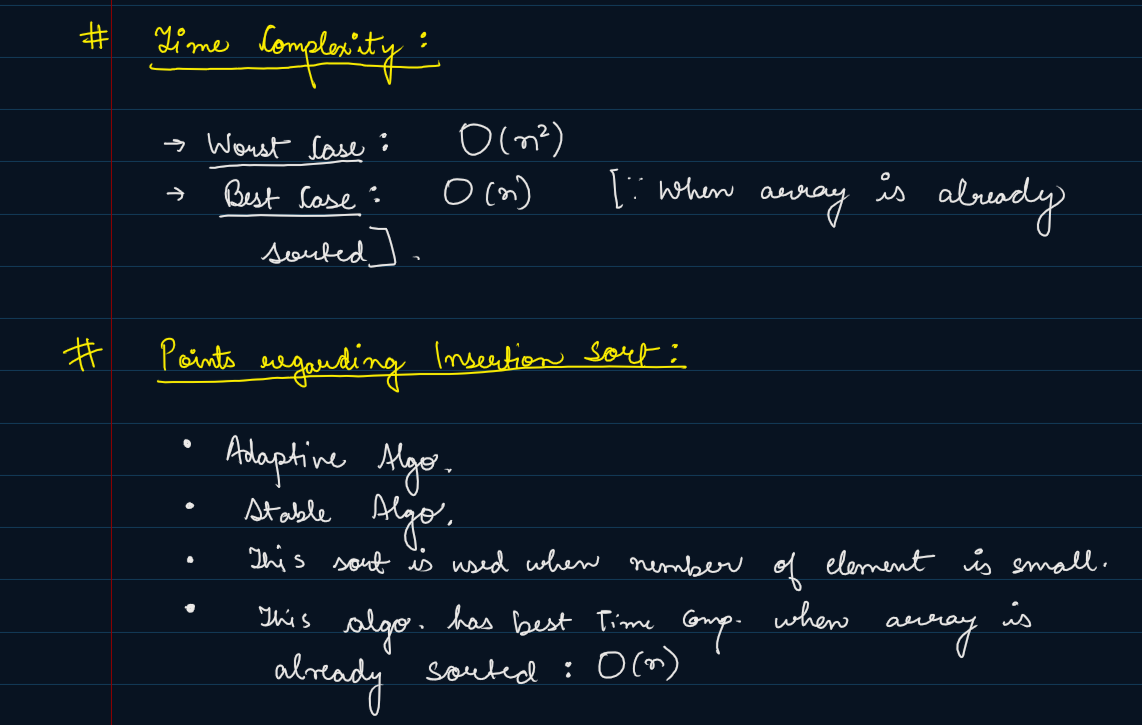 # Time Complexity :
→ Worst Case : O(n²)
→ Best Case : O(n) [∵ when array is already
sorted].
# Points regarding Insertion Sort :
• Adaptive Algo.
• Stable Algo.
• This sort is used when number of element is small.
• This algo. has best Time Comp. when array is
already sorted : O(n)